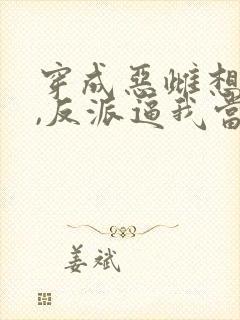 穿成恶雌想
,反派逼我当
姜斌